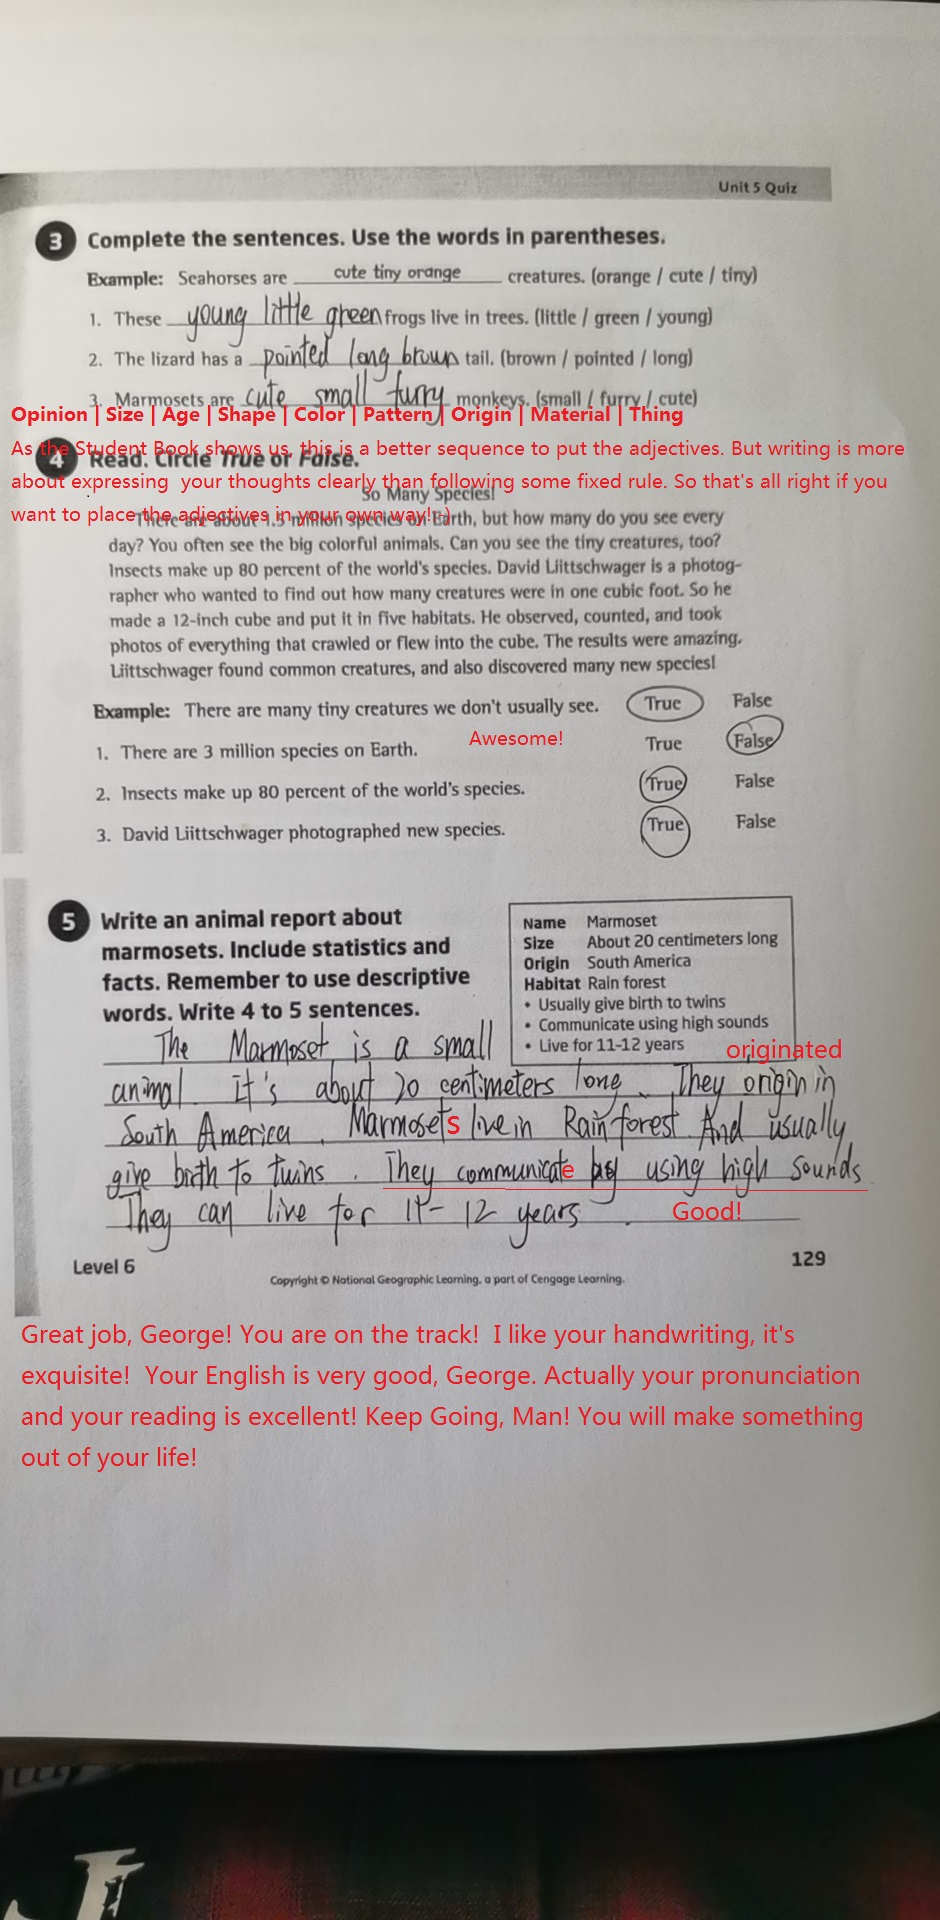 Unit 5 Quiz
3 Complete the sentences. Use the words in parentheses.
Example: Seahorses are cute tiny orange creatures. (orange / cute / tiny)
1. These young little green frogs live in trees. (little / green / young)
2. The lizard has a pointed long brown tail. (brown / pointed / long)
3. Marmosets are cute small furry monkeys. (small / furry / cute)
Opinion | Size | Age | Shape | Color | Pattern | Origin | Material | Thing
As the Student Book shows us, this is a better sequence to put the adjectives. But writing is more
4 Read. Circle True or False.
about expressing your thoughts clearly than following some fixed rule. So that's all right if you
So Many Species!
want to place the adjectives in your own way! :)
There are about 1.5 million species on Earth, but how many do you see every
day? You often see the big colorful animals. Can you see the tiny creatures, too?
Insects make up 80 percent of the world's species. David Liittschwager is a photog-
rapher who wanted to find out how many creatures were in one cubic foot. So he
made a 12-inch cube and put it in five habitats. He observed, counted, and took
photos of everything that crawled or flew into the cube. The results were amazing.
Liittschwager found common creatures, and also discovered many new species!
Example: There are many tiny creatures we don't usually see. True False
Awesome!
1. There are 3 million species on Earth. True False
2. Insects make up 80 percent of the world's species. True False
3. David Liittschwager photographed new species. True False
5 Write an animal report about
marmosets. Include statistics and
facts. Remember to use descriptive
words. Write 4 to 5 sentences.
Name Marmoset
Size About 20 centimeters long
Origin South America
Habitat Rain forest
• Usually give birth to twins
• Communicate using high sounds
• Live for 11-12 years
originated
The Marmoset is a small
animal. it's about 20 centimeters long. They origin in
South America. Marmosets live in Rain forest. And usually
give birth to twins. They communicate by using high sounds
They can live for 11-12 years.
Good!
Level 6
129
Copyright © National Geographic Learning, a part of Cengage Learning.
Great job, George! You are on the track! I like your handwriting, it's
exquisite! Your English is very good, George. Actually your pronunciation
and your reading is excellent! Keep Going, Man! You will make something
out of your life!